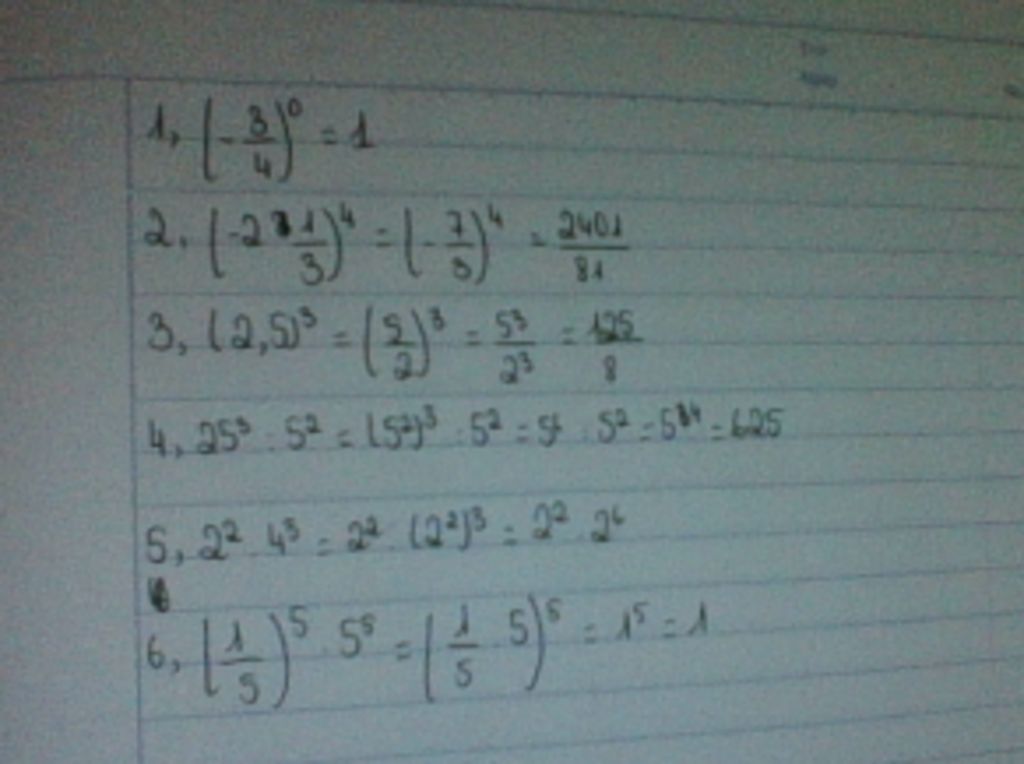 1, (-3/4)⁰ = 1
2, (-2 1/3)⁴ = (-7/3)⁴ = 2401/81
3, (2,5)³ = (5/2)³ = 5³/2³ = 125/8
4, 25³ : 5² = (5²)³ : 5² = 5⁶ : 5² = 5⁴ = 625
5, 2² . 4³ = 2² . (2²)³ = 2² . 2⁶
6, (1/5)⁵ . 5⁵ = (1/5 . 5)⁵ = 1⁵ = 1